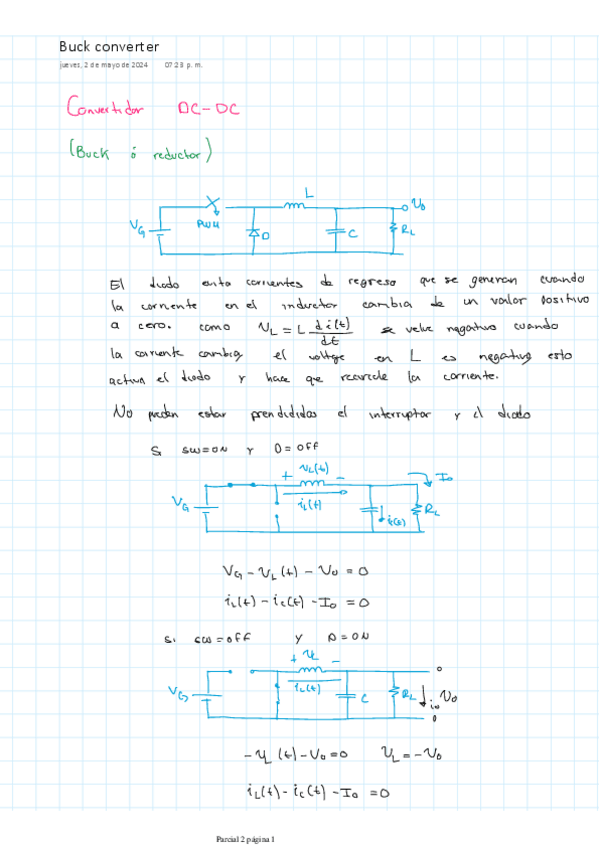 Buck converter
jueves, 2 de mayo de 2024 07:23 p. m.
Convertidor DC-DC
(Buck ó reductor)
L
VG
PWM
D
C
RL
Vo
El diodo evita corrientes de regreso que se generan cuando
la corriente en el inductor cambia de un valor positivo
a cero. como VL = L di(t)/dt se velve negativo cuando
la corriente cambia el voltge en L es negativo esto
activa el diodo y hace que recircule la corriente.
No pueden estar prendididas el interruptor y el diodo
Si SW=ON y D=OFF
+ VL(t) -
Io
VG
iL(t)
ic(t)
RL
VG - VL(t) - Vo = 0
iL(t) - ic(t) - Io = 0
Si SW=OFF y D=ON
+ VL -
VG
iL(t)
C
RL
io
Vo
-VL(t) - Vo = 0 VL = -Vo
iL(t) - ic(t) - Io = 0
Parcial 2 página 1